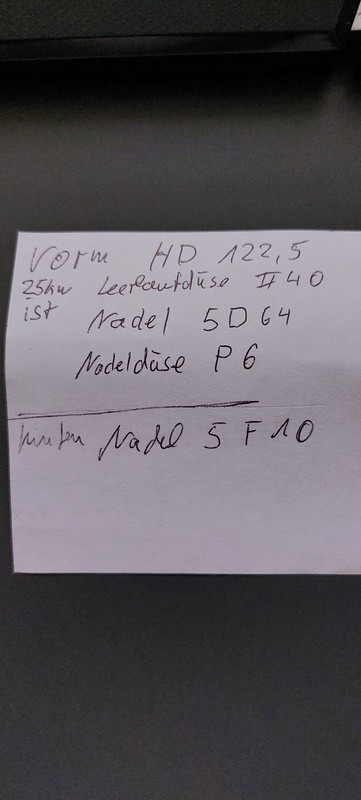 Vorm HD 122,5
25kw Leerlaufdüse # 40
ist Nadel 5D64
Nadeldüse P6
hinten Nadel 5 F 10